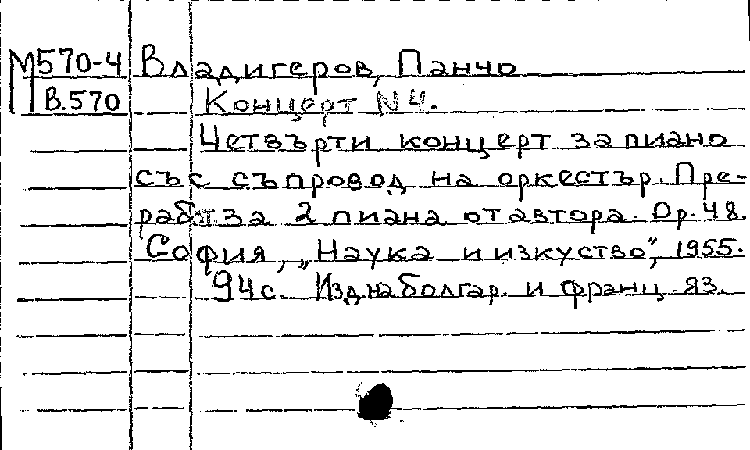 М570-4 Владигеров, Панчо
В.570 Концерт N 4.
Четвърти концерт за пиано
със съпровод на оркестър. Пре-
раб. за 2 пиана от автора. Op. 48.
София, „Наука и изкуство", 1955.
94 с. Изд. на болгар. и франц. яз.